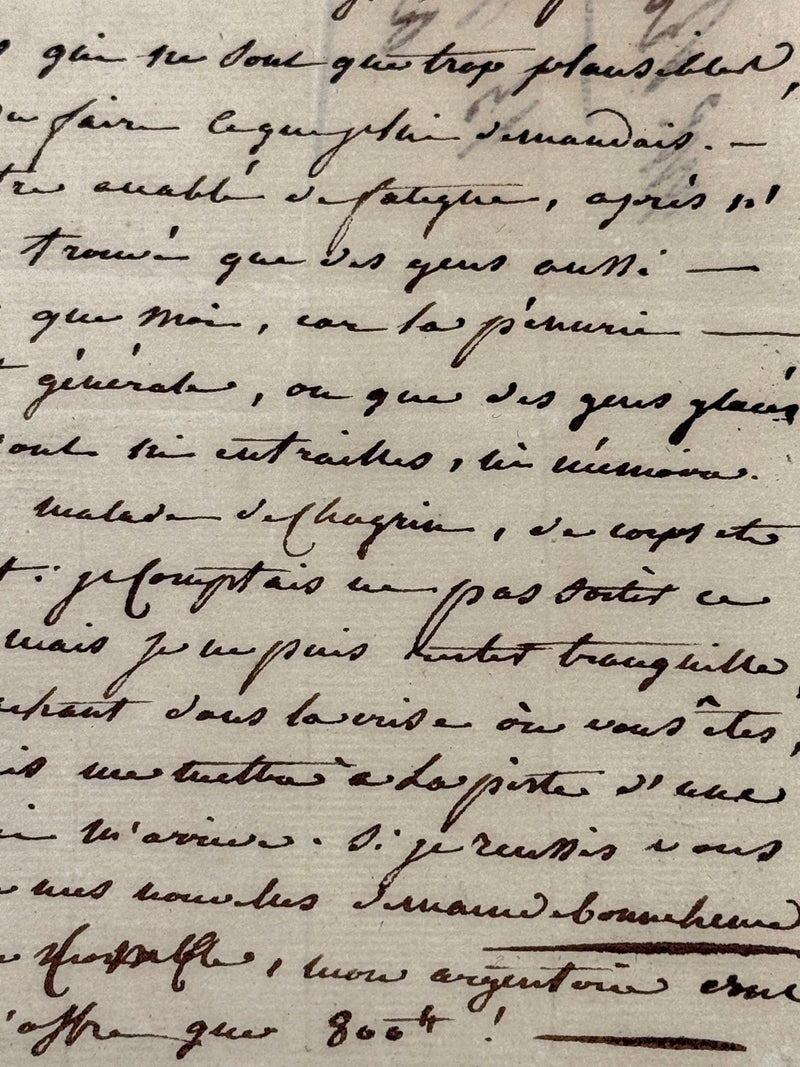 qui ne sont que trop plausibles,
faire ce que je lui demandais. —
accablé de fatigue, après n'
trouvé que des gens aussi —
que moi, car la pénurie —
générale, ou que des gens glacés
ont ni entrailles, ni mémoire.
malade de chagrin, de corps et
: je comptais ne pas sortir ce
mais je ne puis rester tranquille,
chant dans la crise où vous êtes,
is me mettre à la piste d'une
m'arrive. Si je reussis vous
mes nouvelles demain de bonne heure
, mon argenterie
'offre que 800# ! —